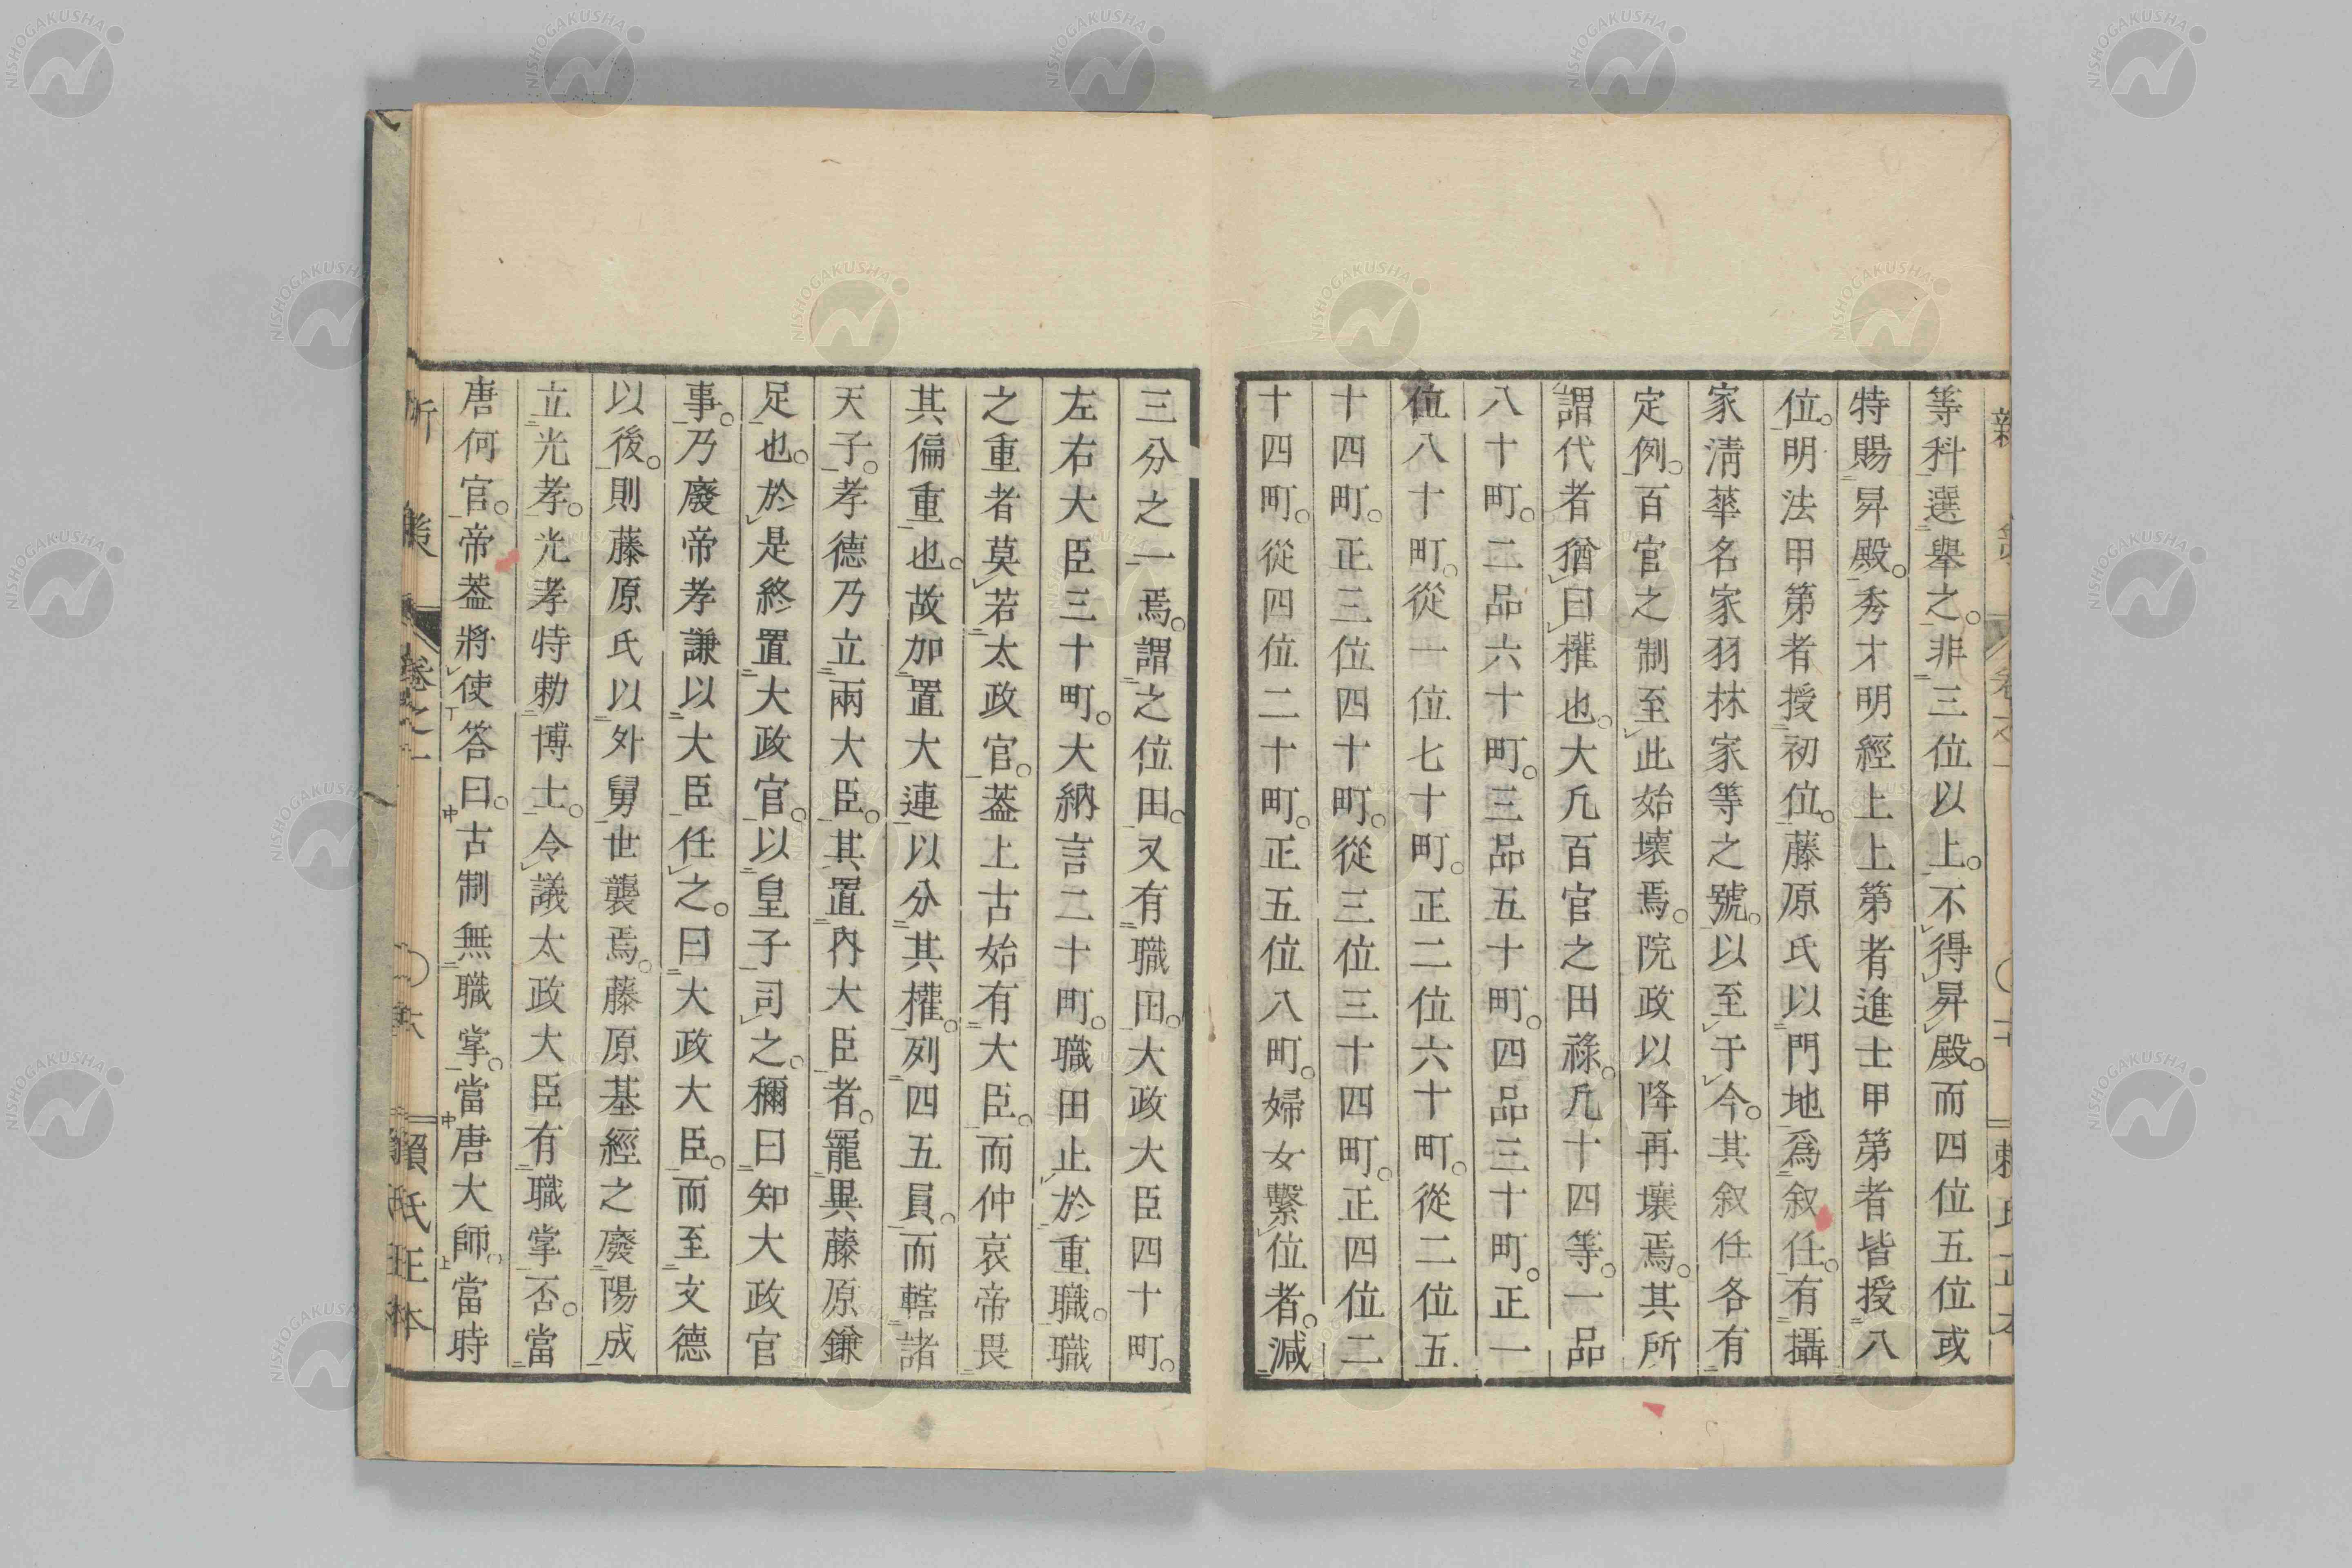 等科選舉之。非三位以上。不得昇殿。而四位五位或
特賜昇殿。秀才明經上上第者進士甲第者皆授八
位。明法甲第者授初位。藤原氏以門地爲叙任。有攝
家淸華名家羽林家等之號。以至于今。其叙任各有
定例。百官之制至此始壞焉。院政以降再壞焉。其所
謂代者猶曰權也。大凡百官之田祿。凡十四等。一品
八十町。二品六十町。三品五十町。四品三十町。正一
位八十町。從一位七十町。正二位六十町。從二位五
十四町。正三位四十町。從三位三十四町。正四位二
十四町。從四位二十町。正五位八町。婦女繫位者。減
三分之一焉。謂之位田。又有職田。大政大臣四十町。
左右大臣三十町。大納言二十町。職田止於重職。職
之重者莫若太政官。蓋上古始有大臣。而仲哀帝畏
其偏重也。故加置大連以分其權。列四五員。而轄諸
天子。孝德乃立兩大臣。其置內大臣者。寵異藤原鎌
足也。於是終置大政官。以皇子司之。稱曰知大政官
事。乃廢帝孝謙以大臣任之。曰大政大臣。而至文德
以後。則藤原氏以外舅世襲焉。藤原基經之廢陽成
立光孝。光孝特勅博士。令議太政大臣有職掌否。當
唐何官。帝蓋將使答曰。古制無職掌。當唐大師。當時
卷之一
賴氏正本
NISHOGAKUSHA